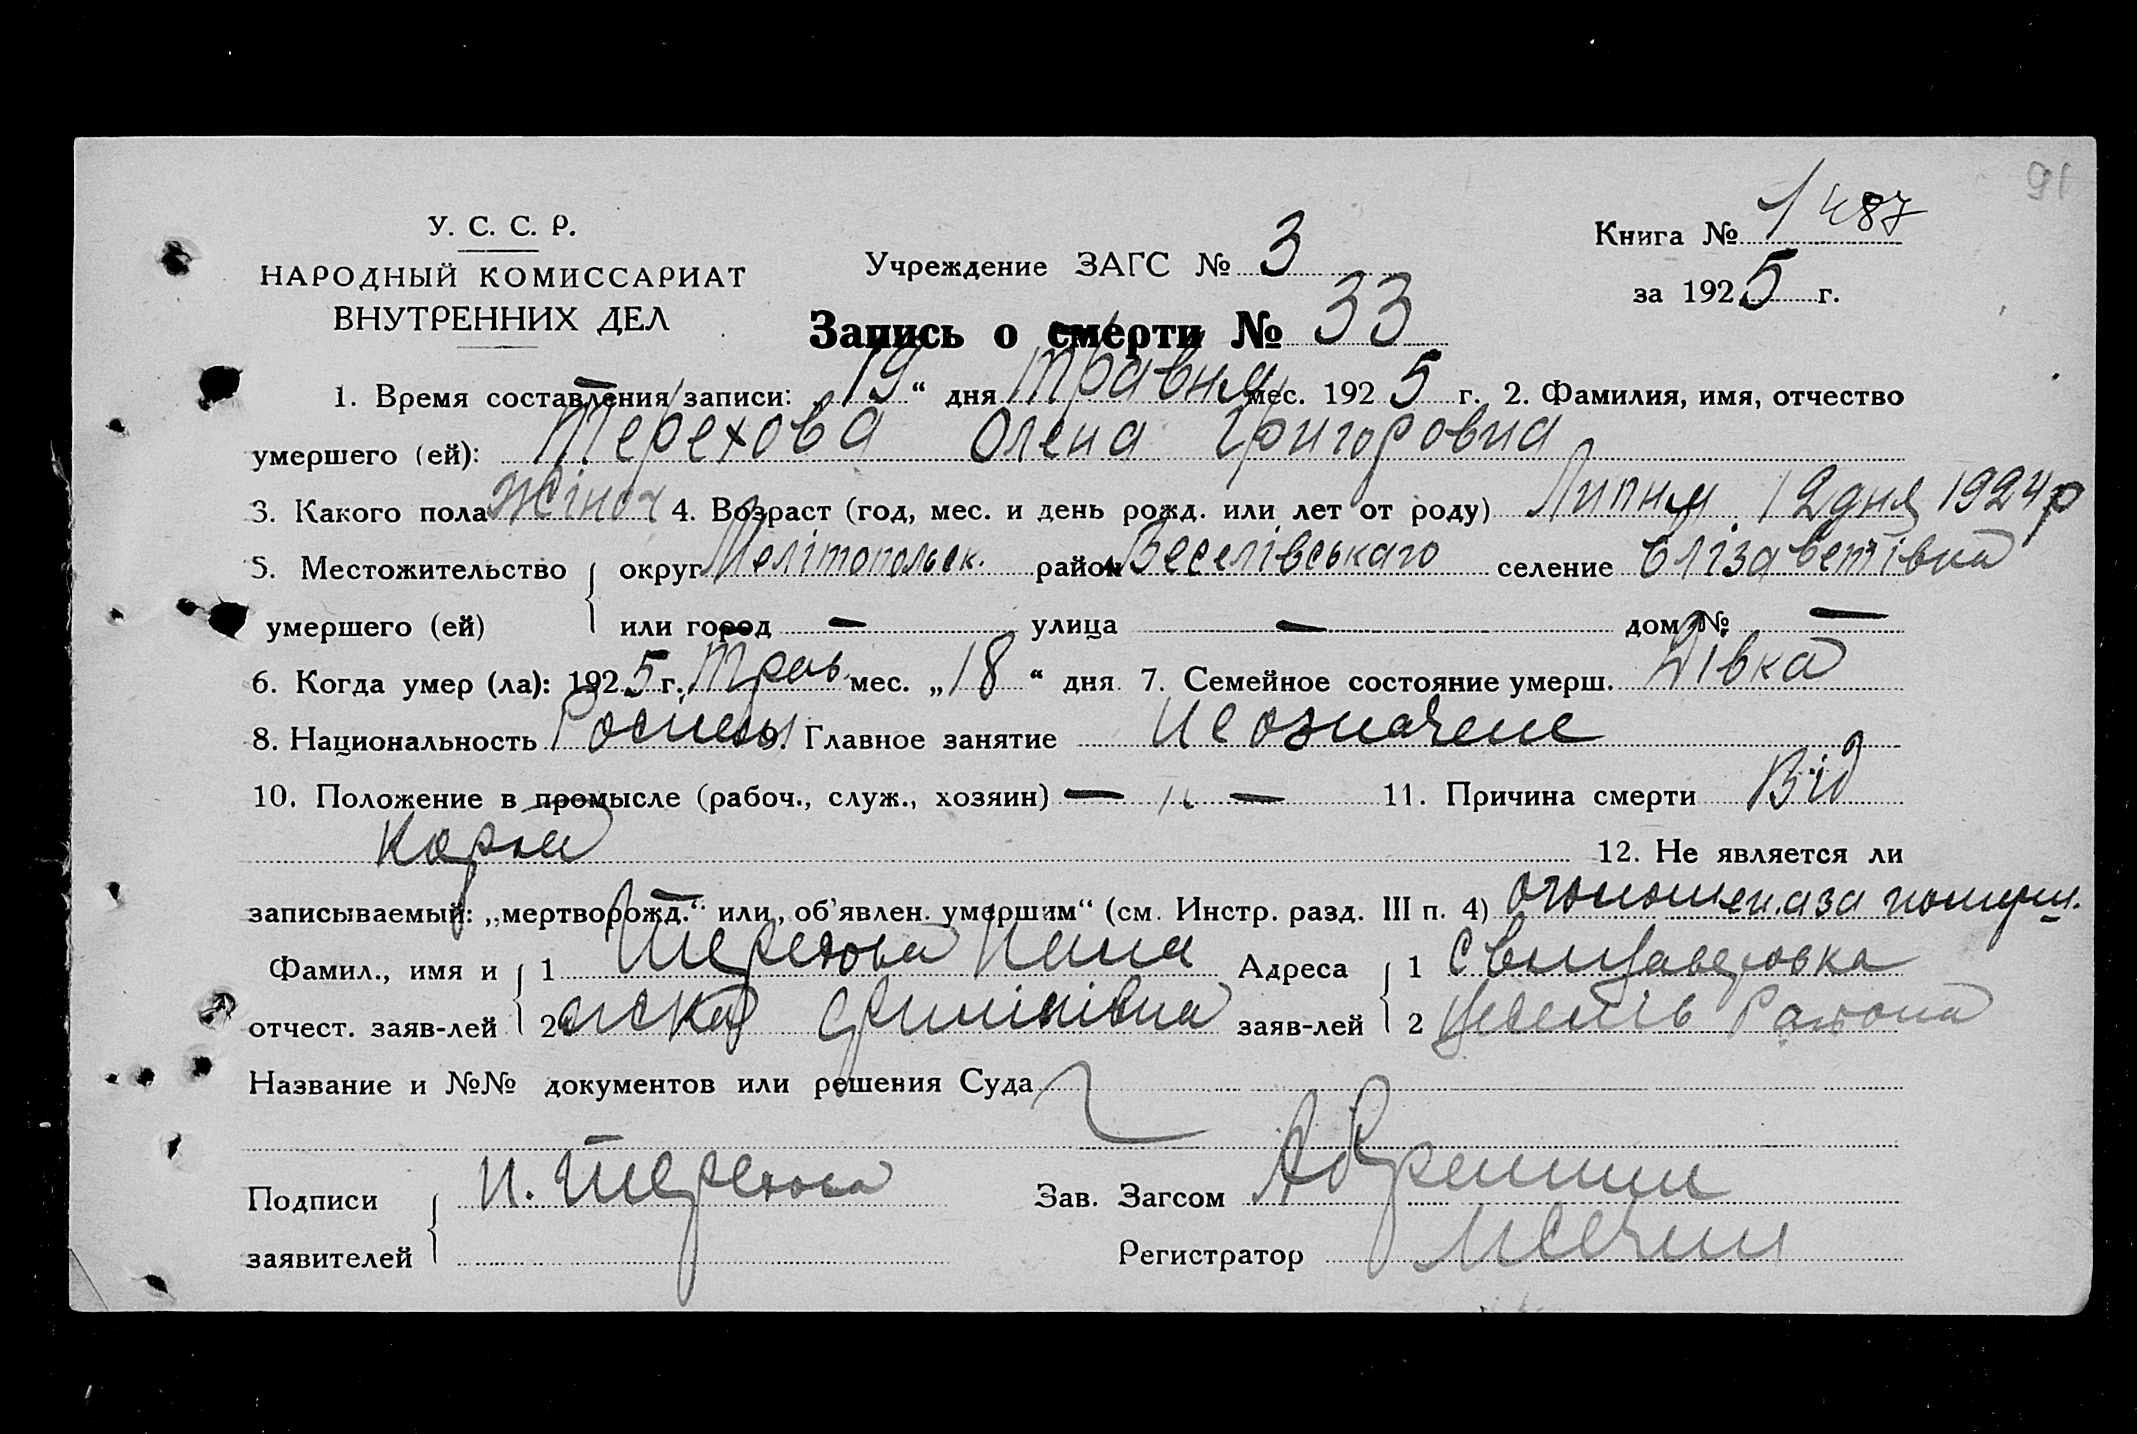 91
У. С. С. Р.
НАРОДНЫЙ КОМИССАРИАТ
ВНУТРЕННИХ ДЕЛ
Учреждение ЗАГС № 3
Книга № 1 487
за 1925 г.
Запись о смерти № 33
1. Время составления записи: „19“ дня Травня мес. 1925 г. 2. Фамилия, имя, отчество
умершего (ей): Терехова Олена Григоровна
3. Какого пола жіноч 4. Возраст (год, мес. и день рожд. или лет от роду) Липня 12 дня 1924 р
5. Местожительство округ Мелітопольск. район Веселівського селение Єлізаветівка
умершего (ей) или город — улица — дом № —
6. Когда умер (ла): 1925 г. Трав. мес. „18“ дня 7. Семейное состояние умерш. Дівка
8. Национальность 9. Главное занятие не означене
10. Положение в промысле (рабоч., служ., хозяин) — „ — 11. Причина смерти Від
кору 12. Не является ли
записываемый: „мертворожд.“ или „об'явлен. умершим“ (см. Инстр. разд. III п. 4)
Фамил., имя и 1 Терехова Адреса 1 с Елизаветовка
отчест. заяв-лей 2 Филипівна заяв-лей 2 Веселів Района
Название и №№ документов или решения Суда
Подписи П. Терехова Зав. Загсом
заявителей Регистратор